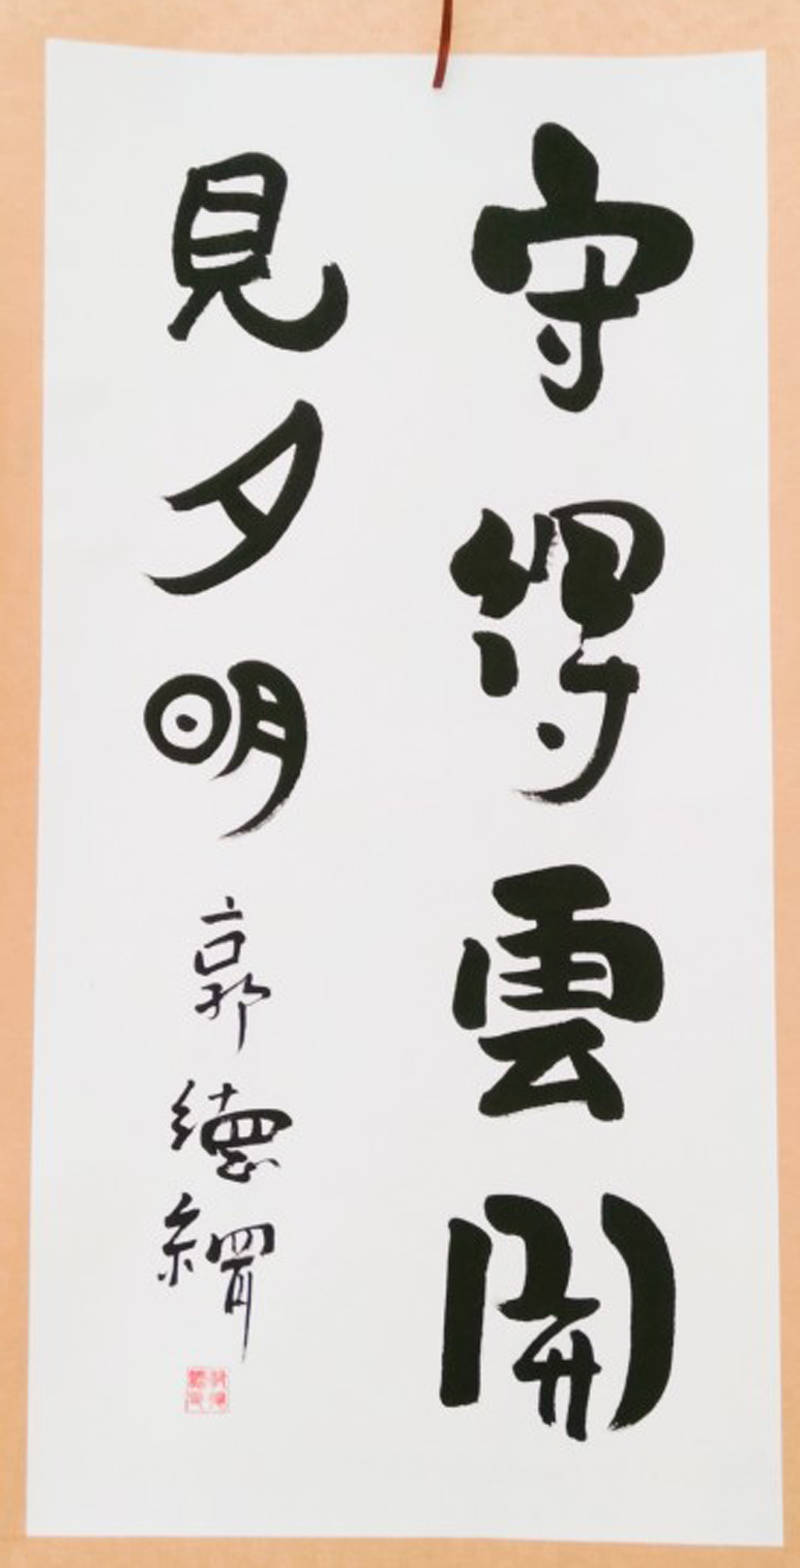 守得雲開
見夕明
郭德綱